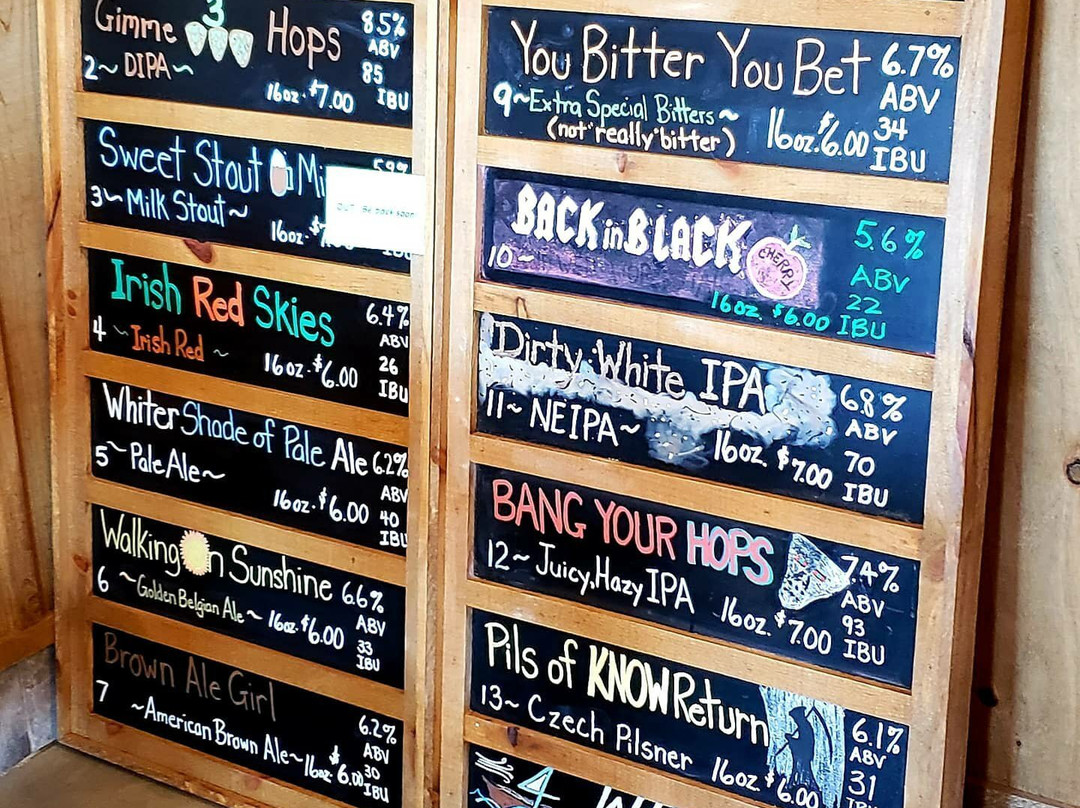 Gimme 3 Hops
8.5%
ABV
2~ DIPA~
85
IBU
16oz. $7.00
Sweet Stout
3~ Milk Stout~
OUT Be back soon
16oz.
IBU
Irish Red Skies
6.4%
ABV
4 ~Irish Red~
26
IBU
16oz. $6.00
Whiter Shade of Pale Ale
6.2%
ABV
5~ Pale Ale~
40
IBU
16oz. $6.00
Walking n Sunshine
6.6%
ABV
6 ~Golden Belgian Ale~ 16oz. $6.00
33
IBU
Brown Ale Girl
6.2%
ABV
7
~American Brown Ale~ 16oz. $6.00
30
IBU
You Bitter You Bet
6.7%
ABV
9~Extra Special Bitters~
(not "really" bitter)
16oz. $6.00
34
IBU
BACK in BLACK
CHERRY
5.6%
ABV
10~
22
IBU
16oz $6.00
Dirty White IPA
6.8%
ABV
11~ NEIPA~
16oz. $7.00
70
IBU
BANG YOUR HOPS
7.4%
ABV
12~ Juicy, Hazy IPA
16oz. $7.00
93
IBU
Pils of KNOW Return
6.1%
ABV
13~ Czech Pilsner
16oz $6.00
31
IBU